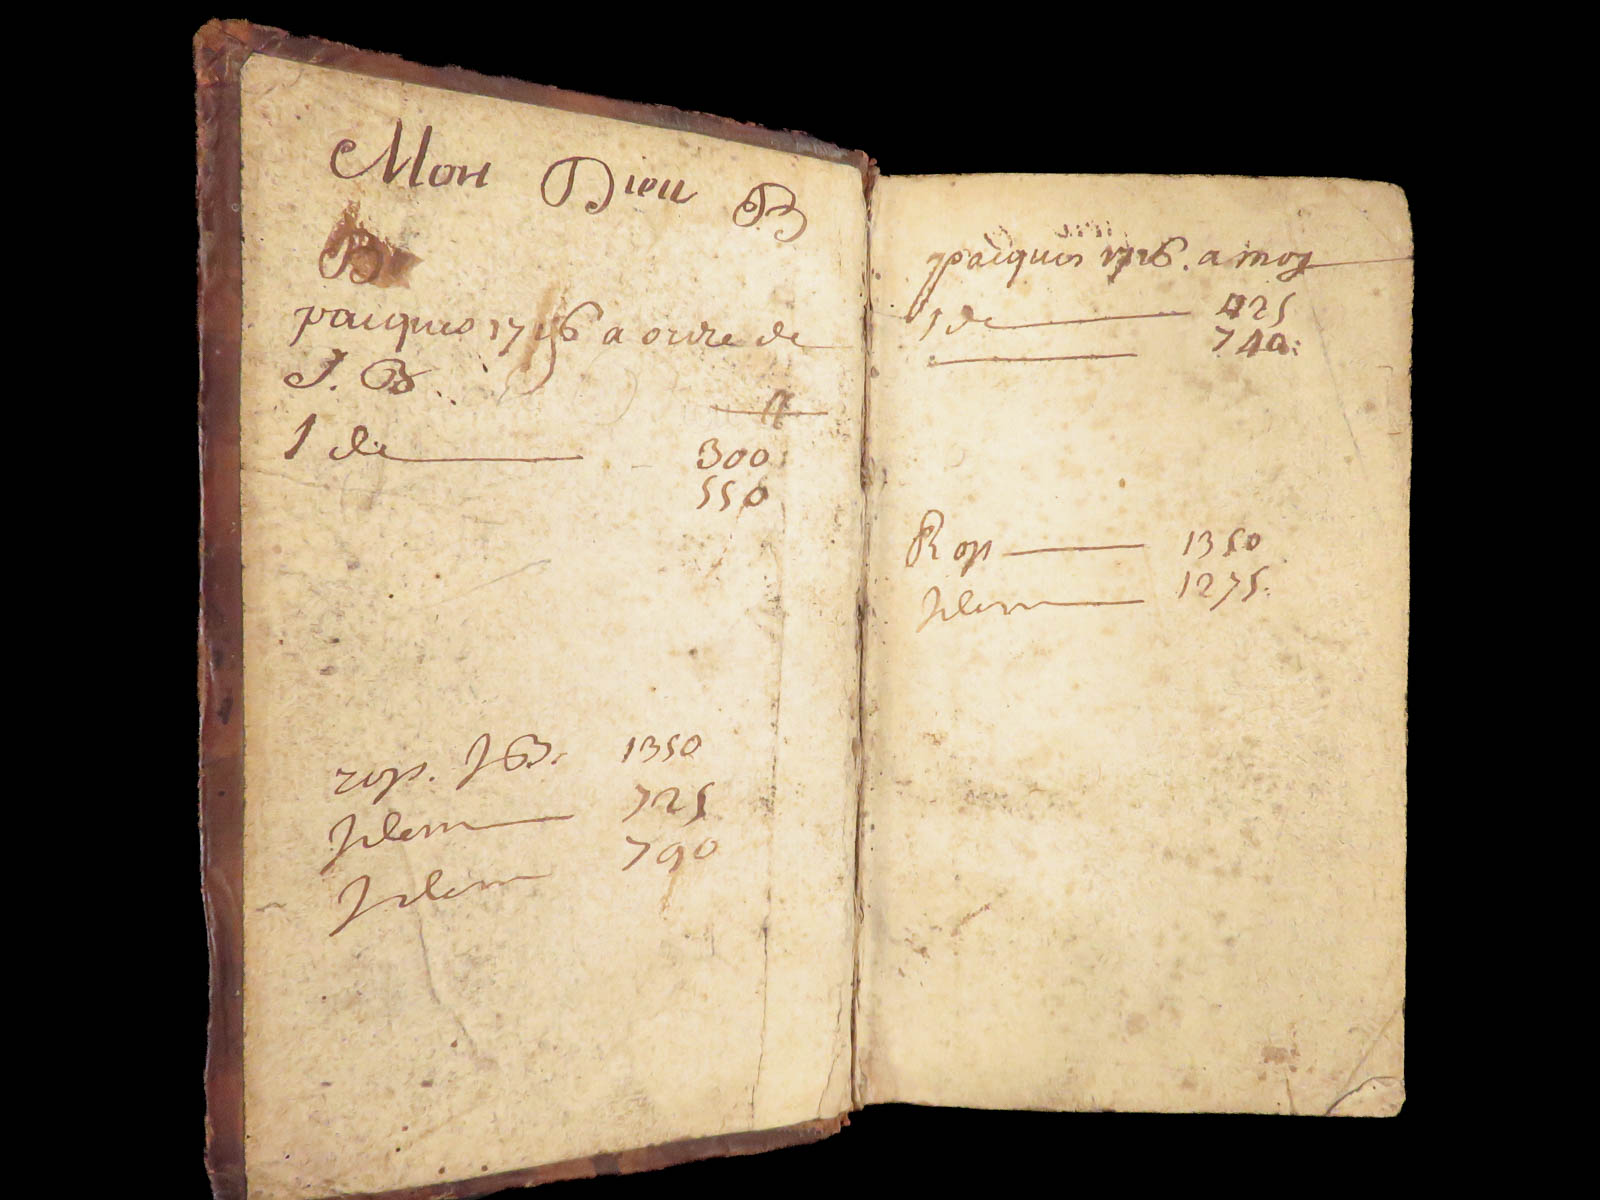 Mon Dieu B
B
pacques 1716 a ordre de
J. B.
1 de
300
550
rop. JB. 1350
Idem 725
Idem 790
pacques 1716. a moy
1 de 425
740:
Rop 1350
Idem 1275.